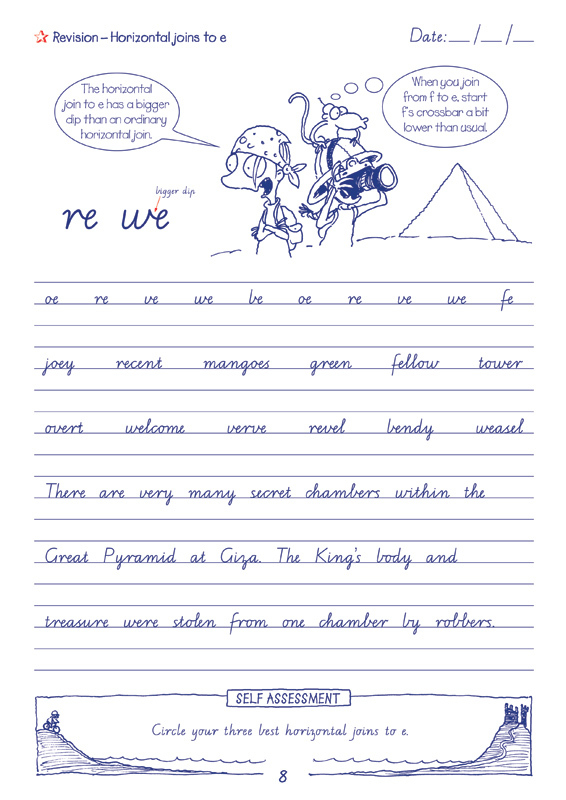 Revision – Horizontal joins to e
Date: __/__/__
The horizontal
join to e has a bigger
dip than an ordinary
horizontal join.
When you join
from f to e, start
f's crossbar a bit
lower than usual.
bigger dip
re we
oe re ve we be oe re ve we fe
joey recent mangoes green fellow tower
overt welcome verve revel bendy weasel
There are very many secret chambers within the
Great Pyramid at Giza. The King's body and
treasure were stolen from one chamber by robbers.
SELF ASSESSMENT
Circle your three best horizontal joins to e.
8